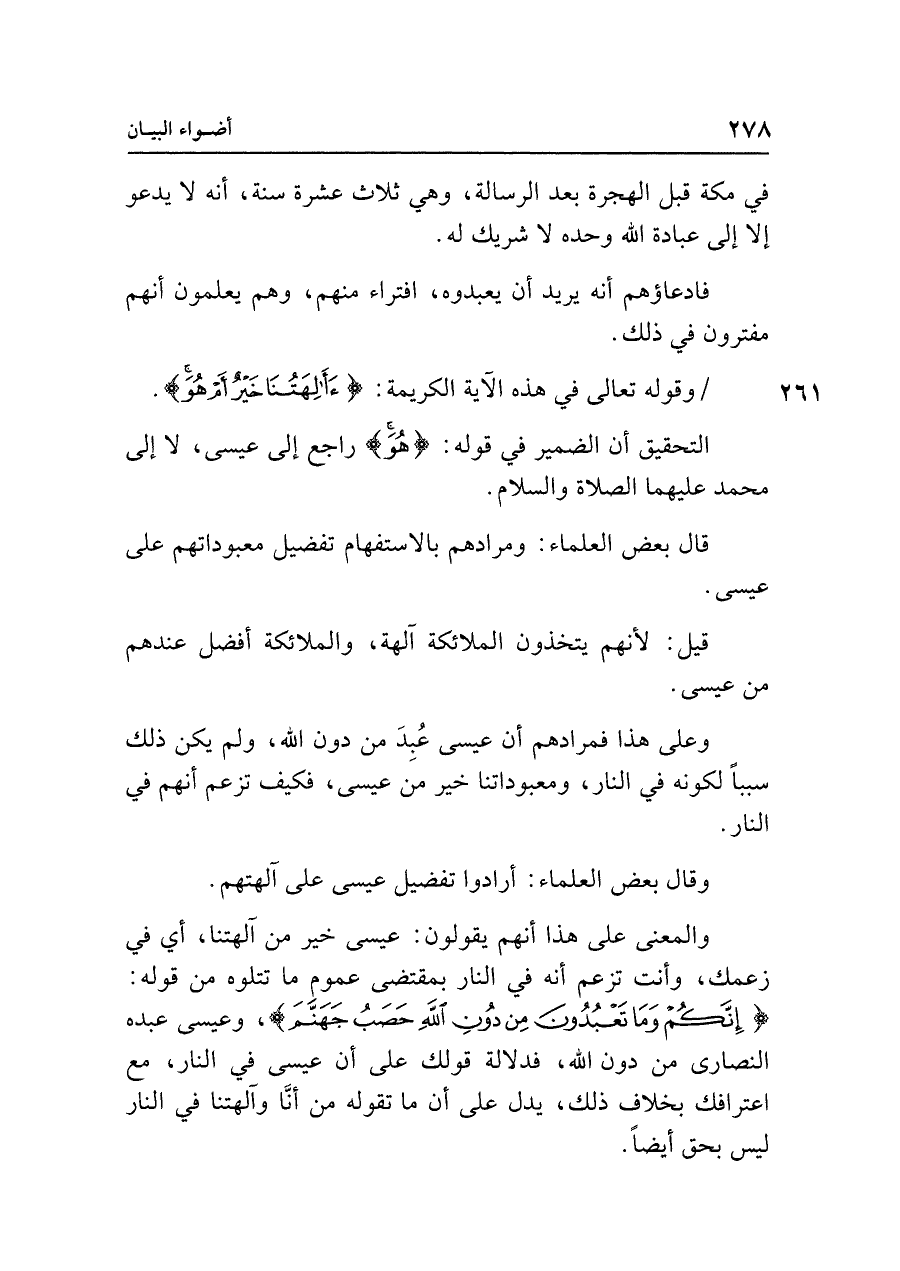 ٢٧٨ أضـواء البيـان
في مكة قبل الهجرة بعد الرسالة، وهي ثلاث عشرة سنة، أنه لا يدعو
إلا إلى عبادة الله وحده لا شريك له.
فادعاؤهم أنه يريد أن يعبدوه، افتراء منهم، وهم يعلمون أنهم
مفترون في ذلك.
٢٦١ / وقوله تعالى في هذه الآية الكريمة: ﴿ءَأَٰلِهَتُنَا خَيْرٌ أَمْ هُوَۚ﴾.
التحقيق أن الضمير في قوله: ﴿هُوَۚ﴾ راجع إلى عيسى، لا إلى
محمد عليهما الصلاة والسلام.
قال بعض العلماء: ومرادهم بالاستفهام تفضيل معبوداتهم على
عيسى.
قيل: لأنهم يتخذون الملائكة آلهة، والملائكة أفضل عندهم
من عيسى.
وعلى هذا فمرادهم أن عيسى عُبِدَ من دون الله، ولم يكن ذلك
سبباً لكونه في النار، ومعبوداتنا خير من عيسى، فكيف تزعم أنهم في
النار.
وقال بعض العلماء: أرادوا تفضيل عيسى على آلهتهم.
والمعنى على هذا أنهم يقولون: عيسى خير من آلهتنا، أي في
زعمك، وأنت تزعم أنه في النار بمقتضى عموم ما تتلوه من قوله:
﴿إِنَّكُمْ وَمَا تَعْبُدُونَ مِن دُونِ ٱللَّهِ حَصَبُ جَهَنَّمَ﴾، وعيسى عبده
النصارى من دون الله، فدلالة قولك على أن عيسى في النار، مع
اعترافك بخلاف ذلك، يدل على أن ما تقوله من أنَّا وآلهتنا في النار
ليس بحق أيضاً.